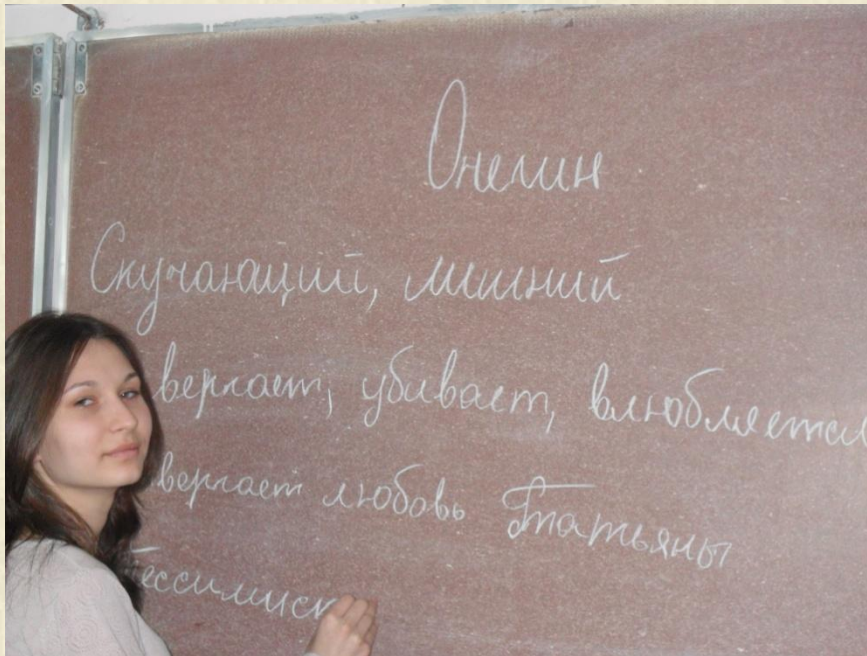 Онегин
Скучающий, лишний
вергает, убивает, влюбляется
вергает любовь Татьяны
ессимис